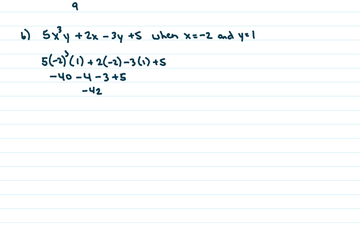 9
b) 5x³y + 2x - 3y + 5 when x = -2 and y = 1
5(-2)³(1) + 2(-2) - 3(1) + 5
-40 - 4 - 3 + 5
-42